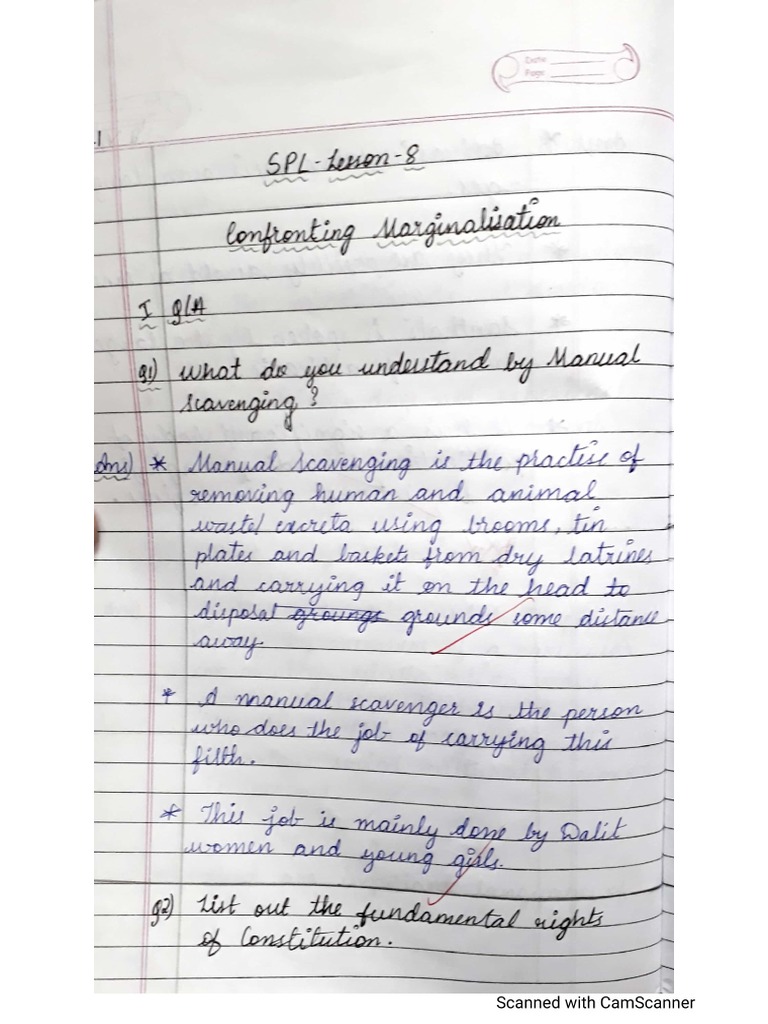 Date
Page
SPL-Lesson-8
Confronting Marginalisation
I Q/A
Q1) What do you understand by Manual
Scavenging?
Ans) * Manual Scavenging is the practise of
removing human and animal
waste/excreta using brooms, tin
plates and baskets from dry latrines
and carrying it on the head to
disposal groungs grounds some distance
away.
* A manual scavenger is the person
who does the job of carrying this
filth.
* This job is mainly done by Dalit
women and young girls.
Q2) List out the fundamental rights
of Constitution.
Scanned with CamScanner